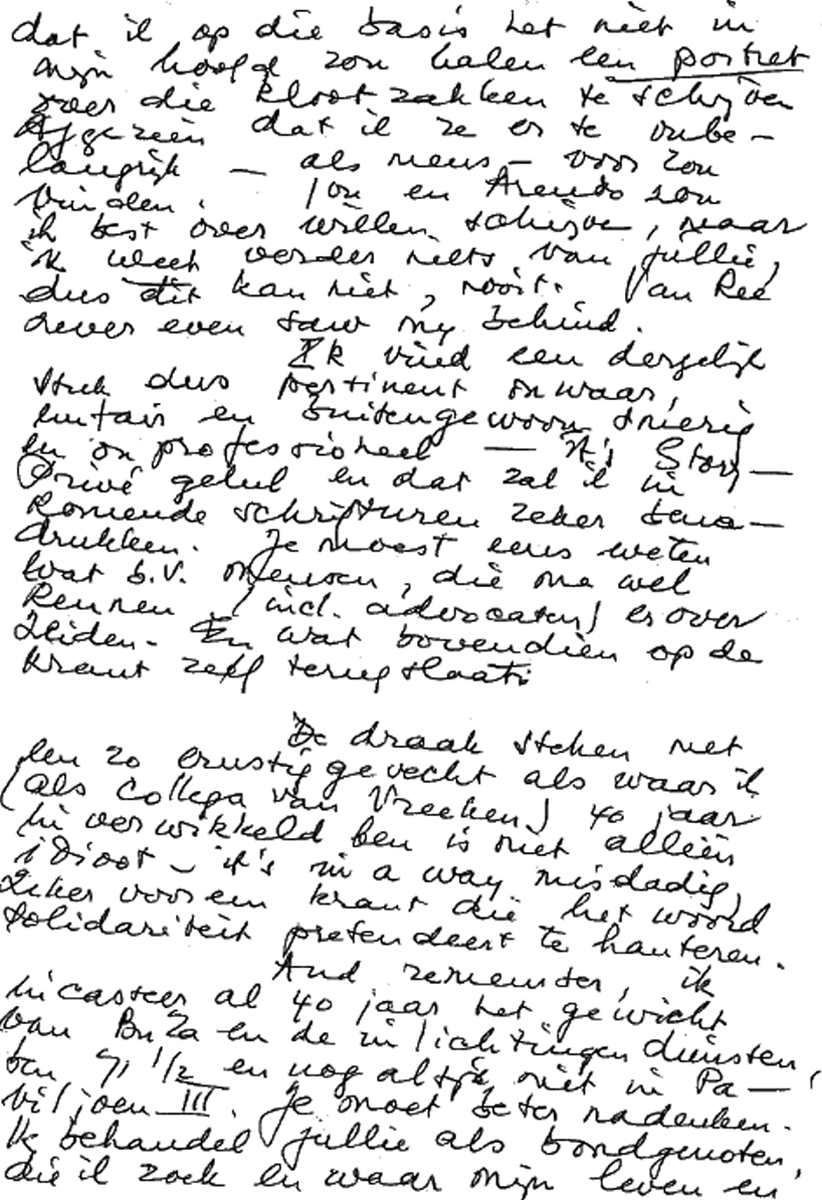 dat ik op die basis het niet in
mijn hoofd zou halen een portret
over die klootzakken te schrijven
Afgezien dat ik ze er te onbe-
langrijk — als mens — voor zou
vinden. Jou en Arendo zou
ik best over willen schrijve, maar
ik weet verder niets van jullie,
dus dit kan niet, nooit. Van Ree
never even saw my behind.
Ik vind een dergelijk
stuk dus pertinent onwaar,
unfair en buitengewoon smerig
en onprofessioneel — it's Story-
Privé gelul en dat zal ik in
komende schrifturen zeker bena-
drukken. Je moest eens weten
wat b.v. mensen, die me wel
kennen (incl. advocaten) erover
zeiden. En wat bovendien op de
krant zelf terugslaat.
De draak steken met
een zo ernstig gevecht als waar ik
(als collega van Vreeken) 40 jaar
in verwikkeld ben is niet alleen
idioot — it's in a way misdadig,
zeker voor een krant die het woord
solidariteit pretendeert te hanteren.
And remember, ik
incasseer al 40 jaar het gewicht
van BuZa en de inlichtingendiensten,
ben 71 1/2 en nog altijd niet in Pa-
viljoen III. Je moet beter nadenken.
Ik behandel jullie als bondgenoten,
die ik zoek en waar mijn leven en